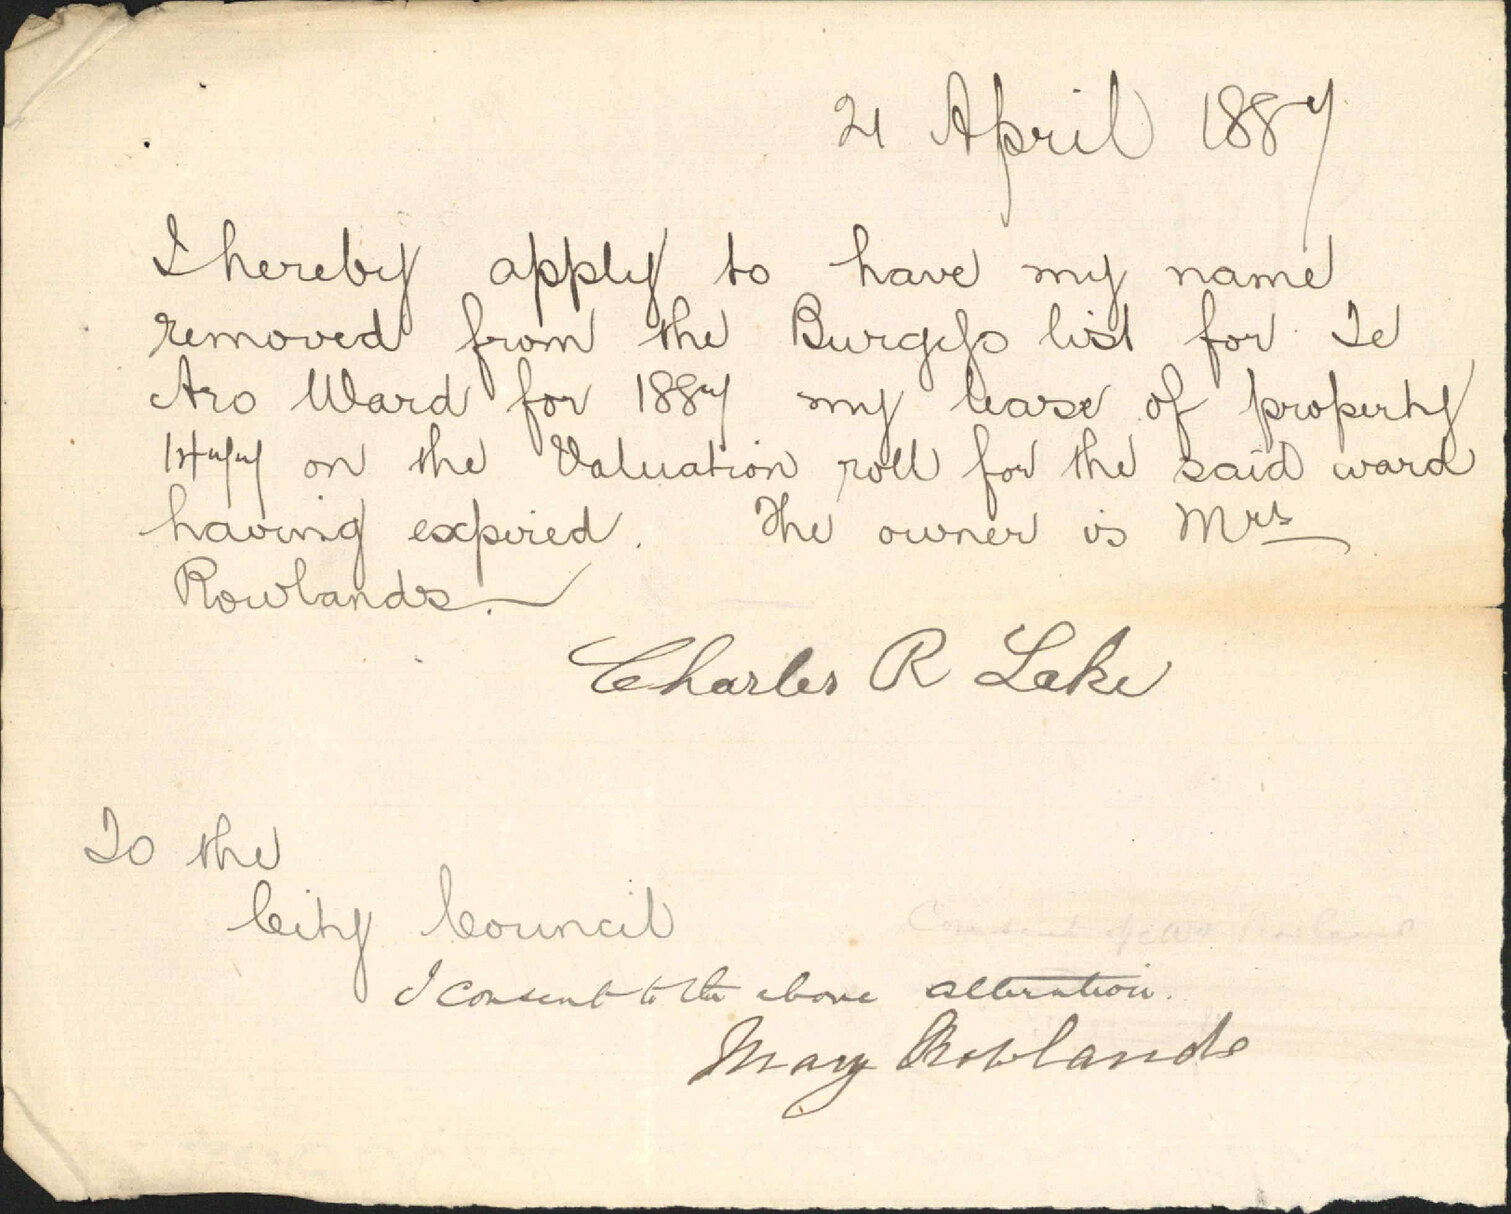 21 April 1887
I hereby apply to have my name
removed from the Burgess list for Te
Aro Ward for 1887 my lease of property
1477 on the Valuation roll for the said ward
having expired. The owner is Mrs
Rowlands.
Charles R Lake
To the
City Council
Consent of Mrs Rowlands
I consent to the above alteration.
Mary Rowlands